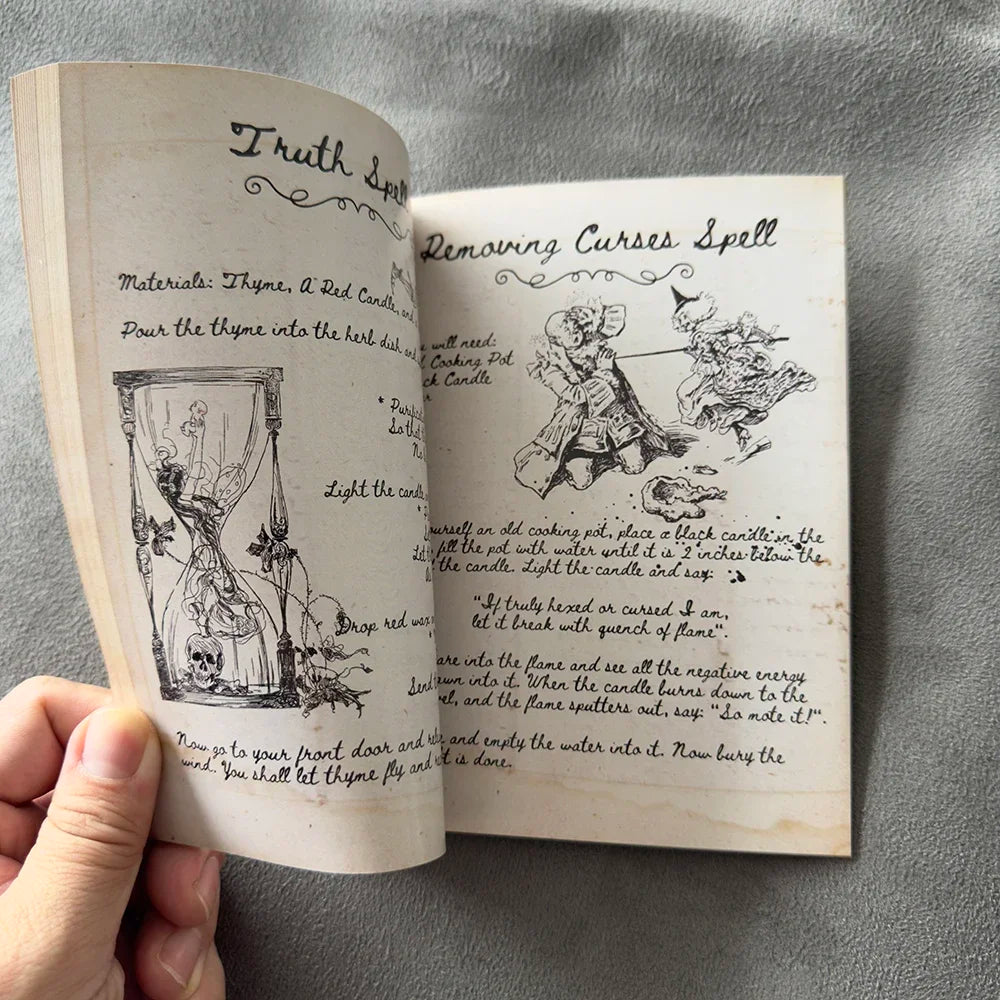 Truth Spell
Materials: Thyme, A Red Candle, and
Pour the thyme into the herb dish and
*
So that
Light the candle
*
Let
Drop red wax
*
Send
Now go to your front door and
wind. You shall let thyme fly and
Removing Curses Spell
will need:
Cooking Pot
Candle
ourself an old cooking pot, place a black candle in the
fill the pot with water until it is 2 inches below the
the candle. Light the candle and say:
"If truly hexed or cursed I am,
let it break with quench of flame".
are into the flame and see all the negative energy
awn into it. When the candle burns down to the
vel, and the flame sputters out, say: "So mote it!".
and empty the water into it. Now bury the
t is done.